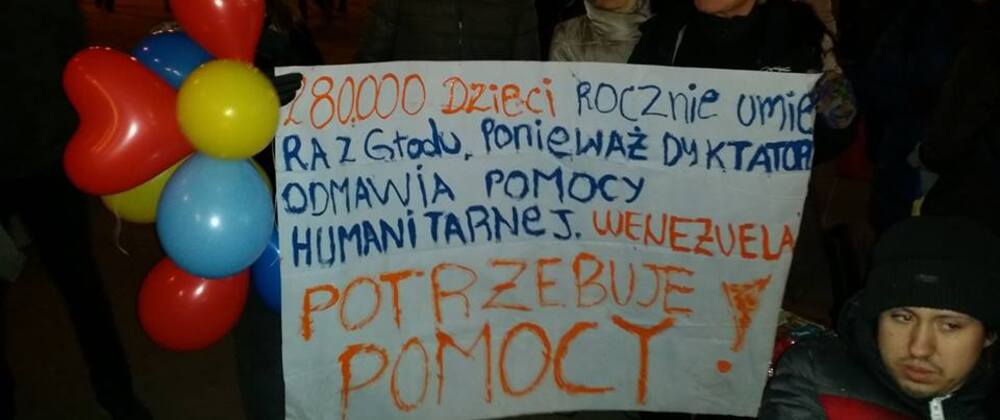 280.000 Dzieci ROCZNIE umie
RA Z Głodu, PONIEWAŻ DYKTATOR
ODMAWIA POMOCY
HUMANITARNEJ. WENEZUELA
POTRZEBUJE
POMOCY!